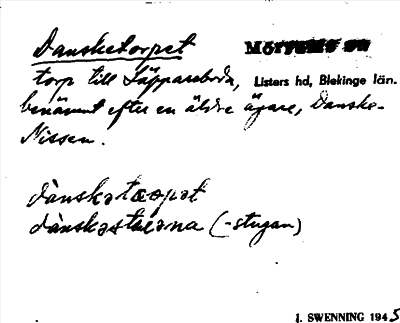 Dansketorpet
torp till Säpparaboda, Listers hd, Blekinge län.
benämnt efter en äldre ägare, Danske-
Nissen.
dànskətæpət
dànskəstuerna (-stugan)
J. SWENNING 1945